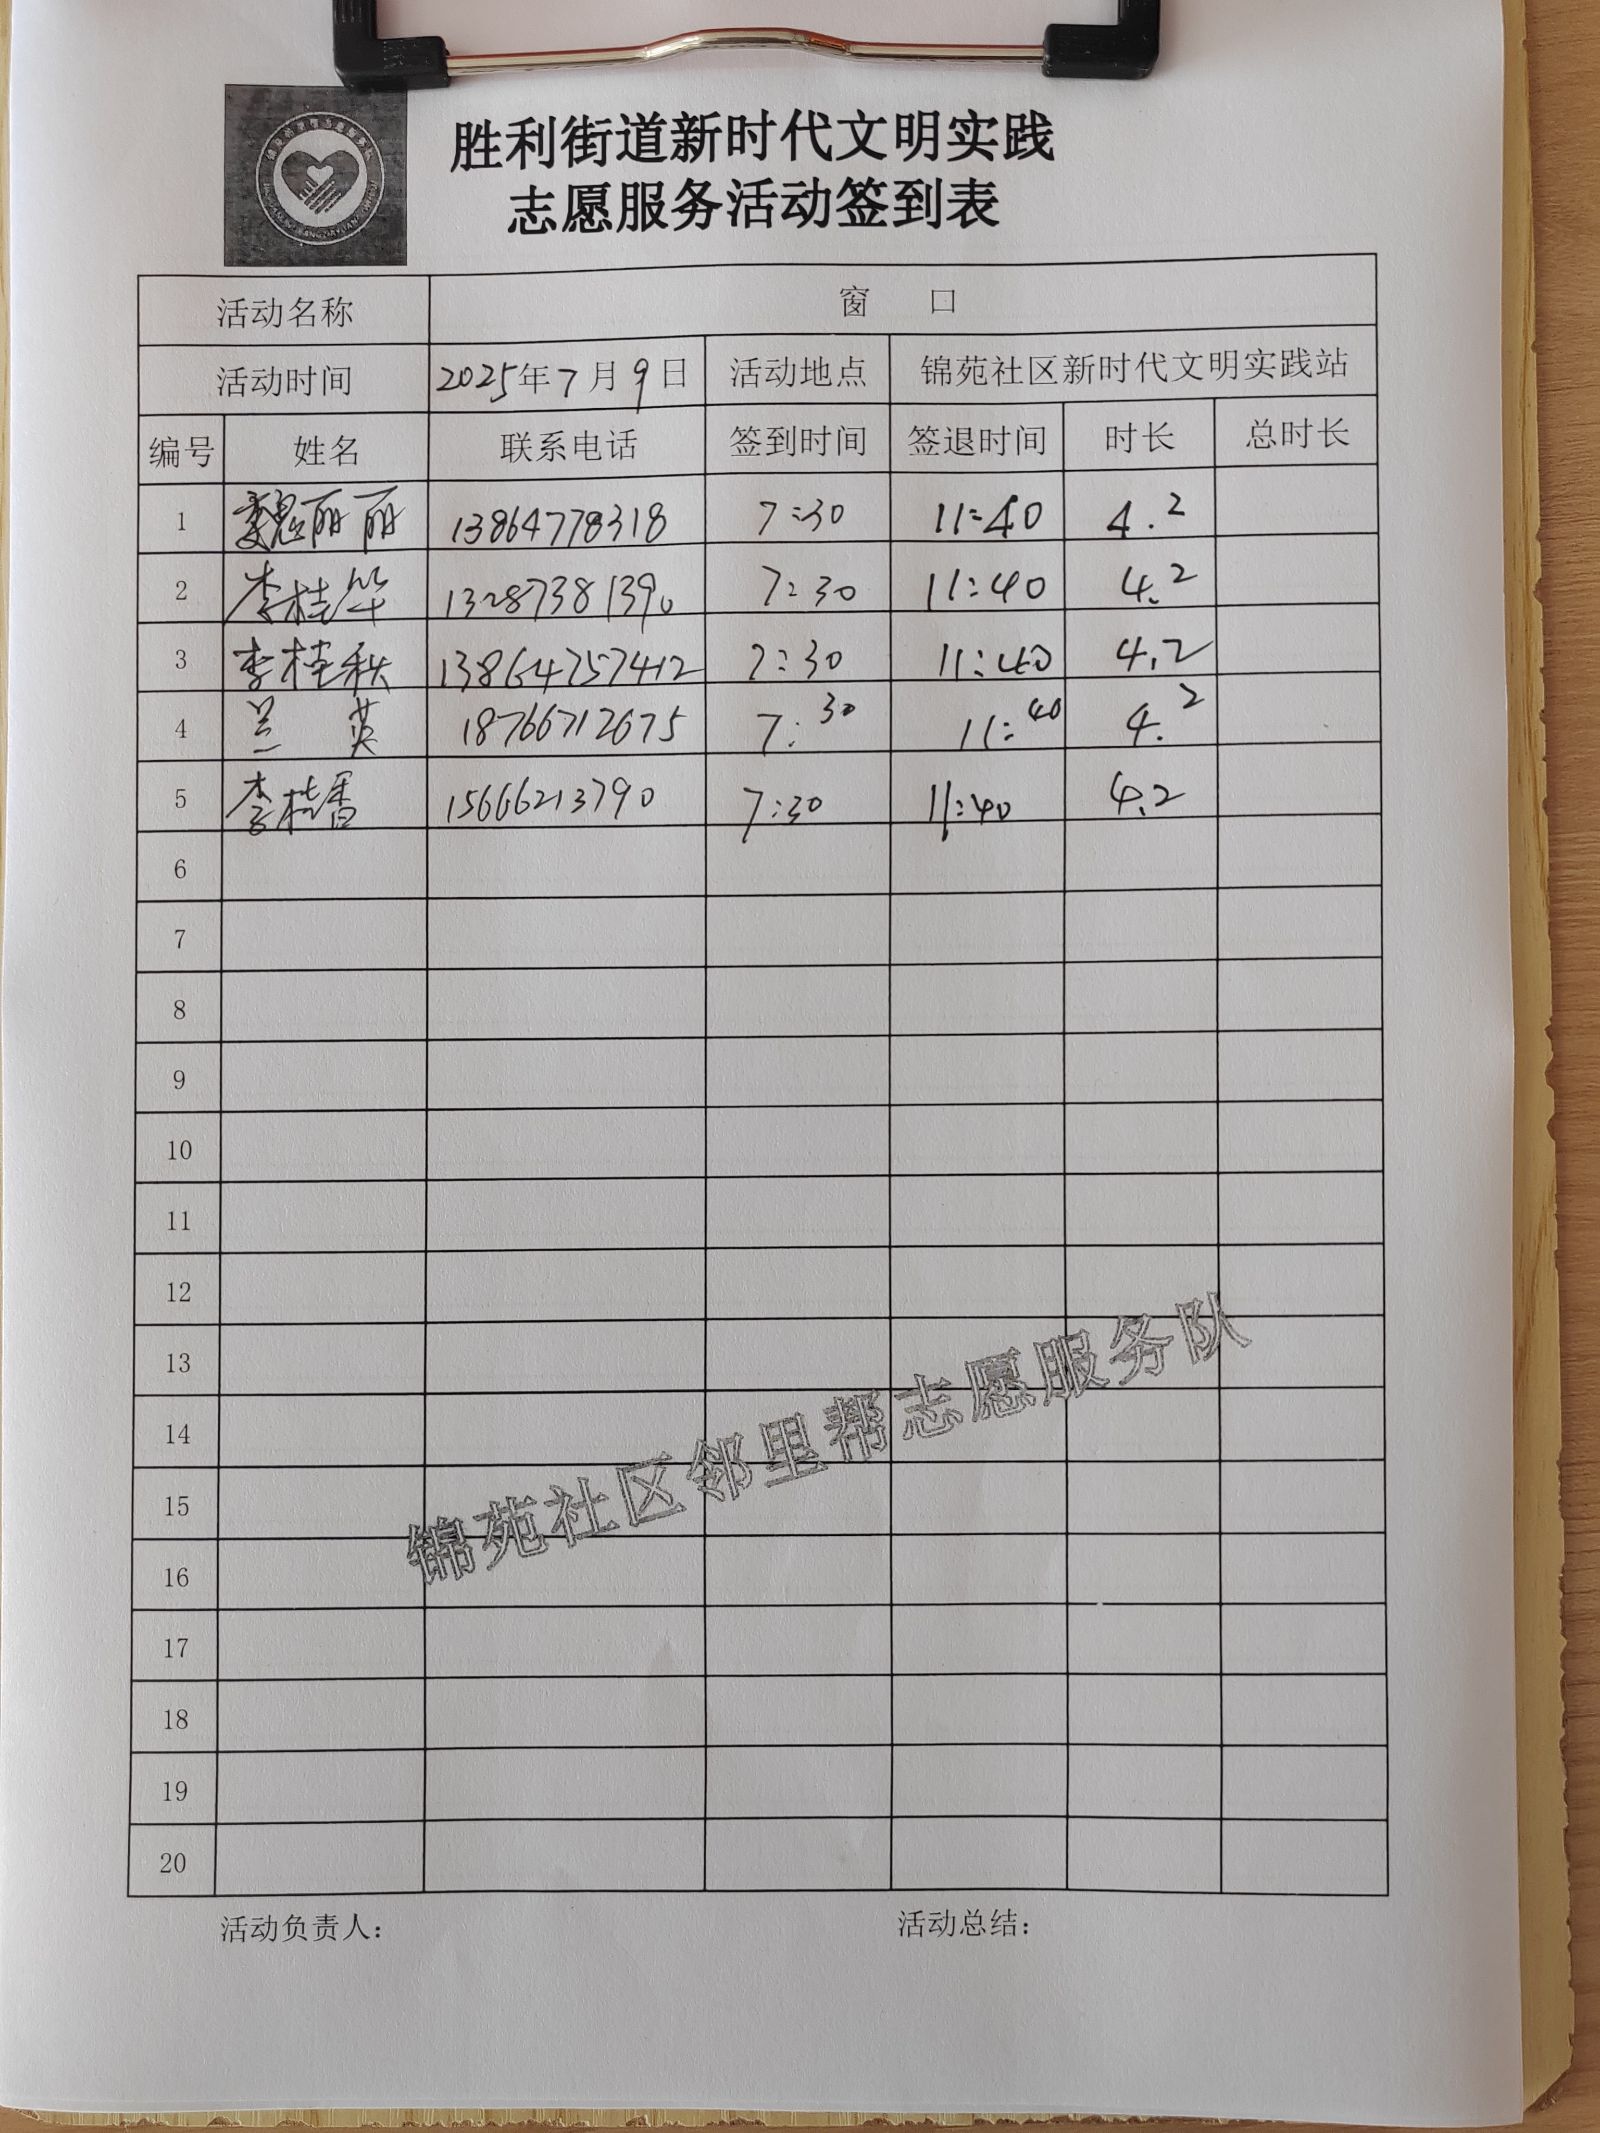 胜利街道新时代文明实践
志愿服务活动签到表
活动名称 窗 口
活动时间 2025年7月9日 活动地点 锦苑社区新时代文明实践站
编号 姓名 联系电话 签到时间 签退时间 时长 总时长
1 魏丽丽 13864778318 7:30 11:40 4.2
2 李桂华 13287381390 7:30 11:40 4.2
3 李桂秋 13864757412 7:30 11:40 4.2
4 兰 英 18766712675 7:30 11:40 4.2
5 李桂香 15666213790 7:30 11:40 4.2
6
7
8
9
10
11
12
13
14
15
16
17
18
19
20
锦苑社区邻里帮志愿服务队
活动负责人： 活动总结：